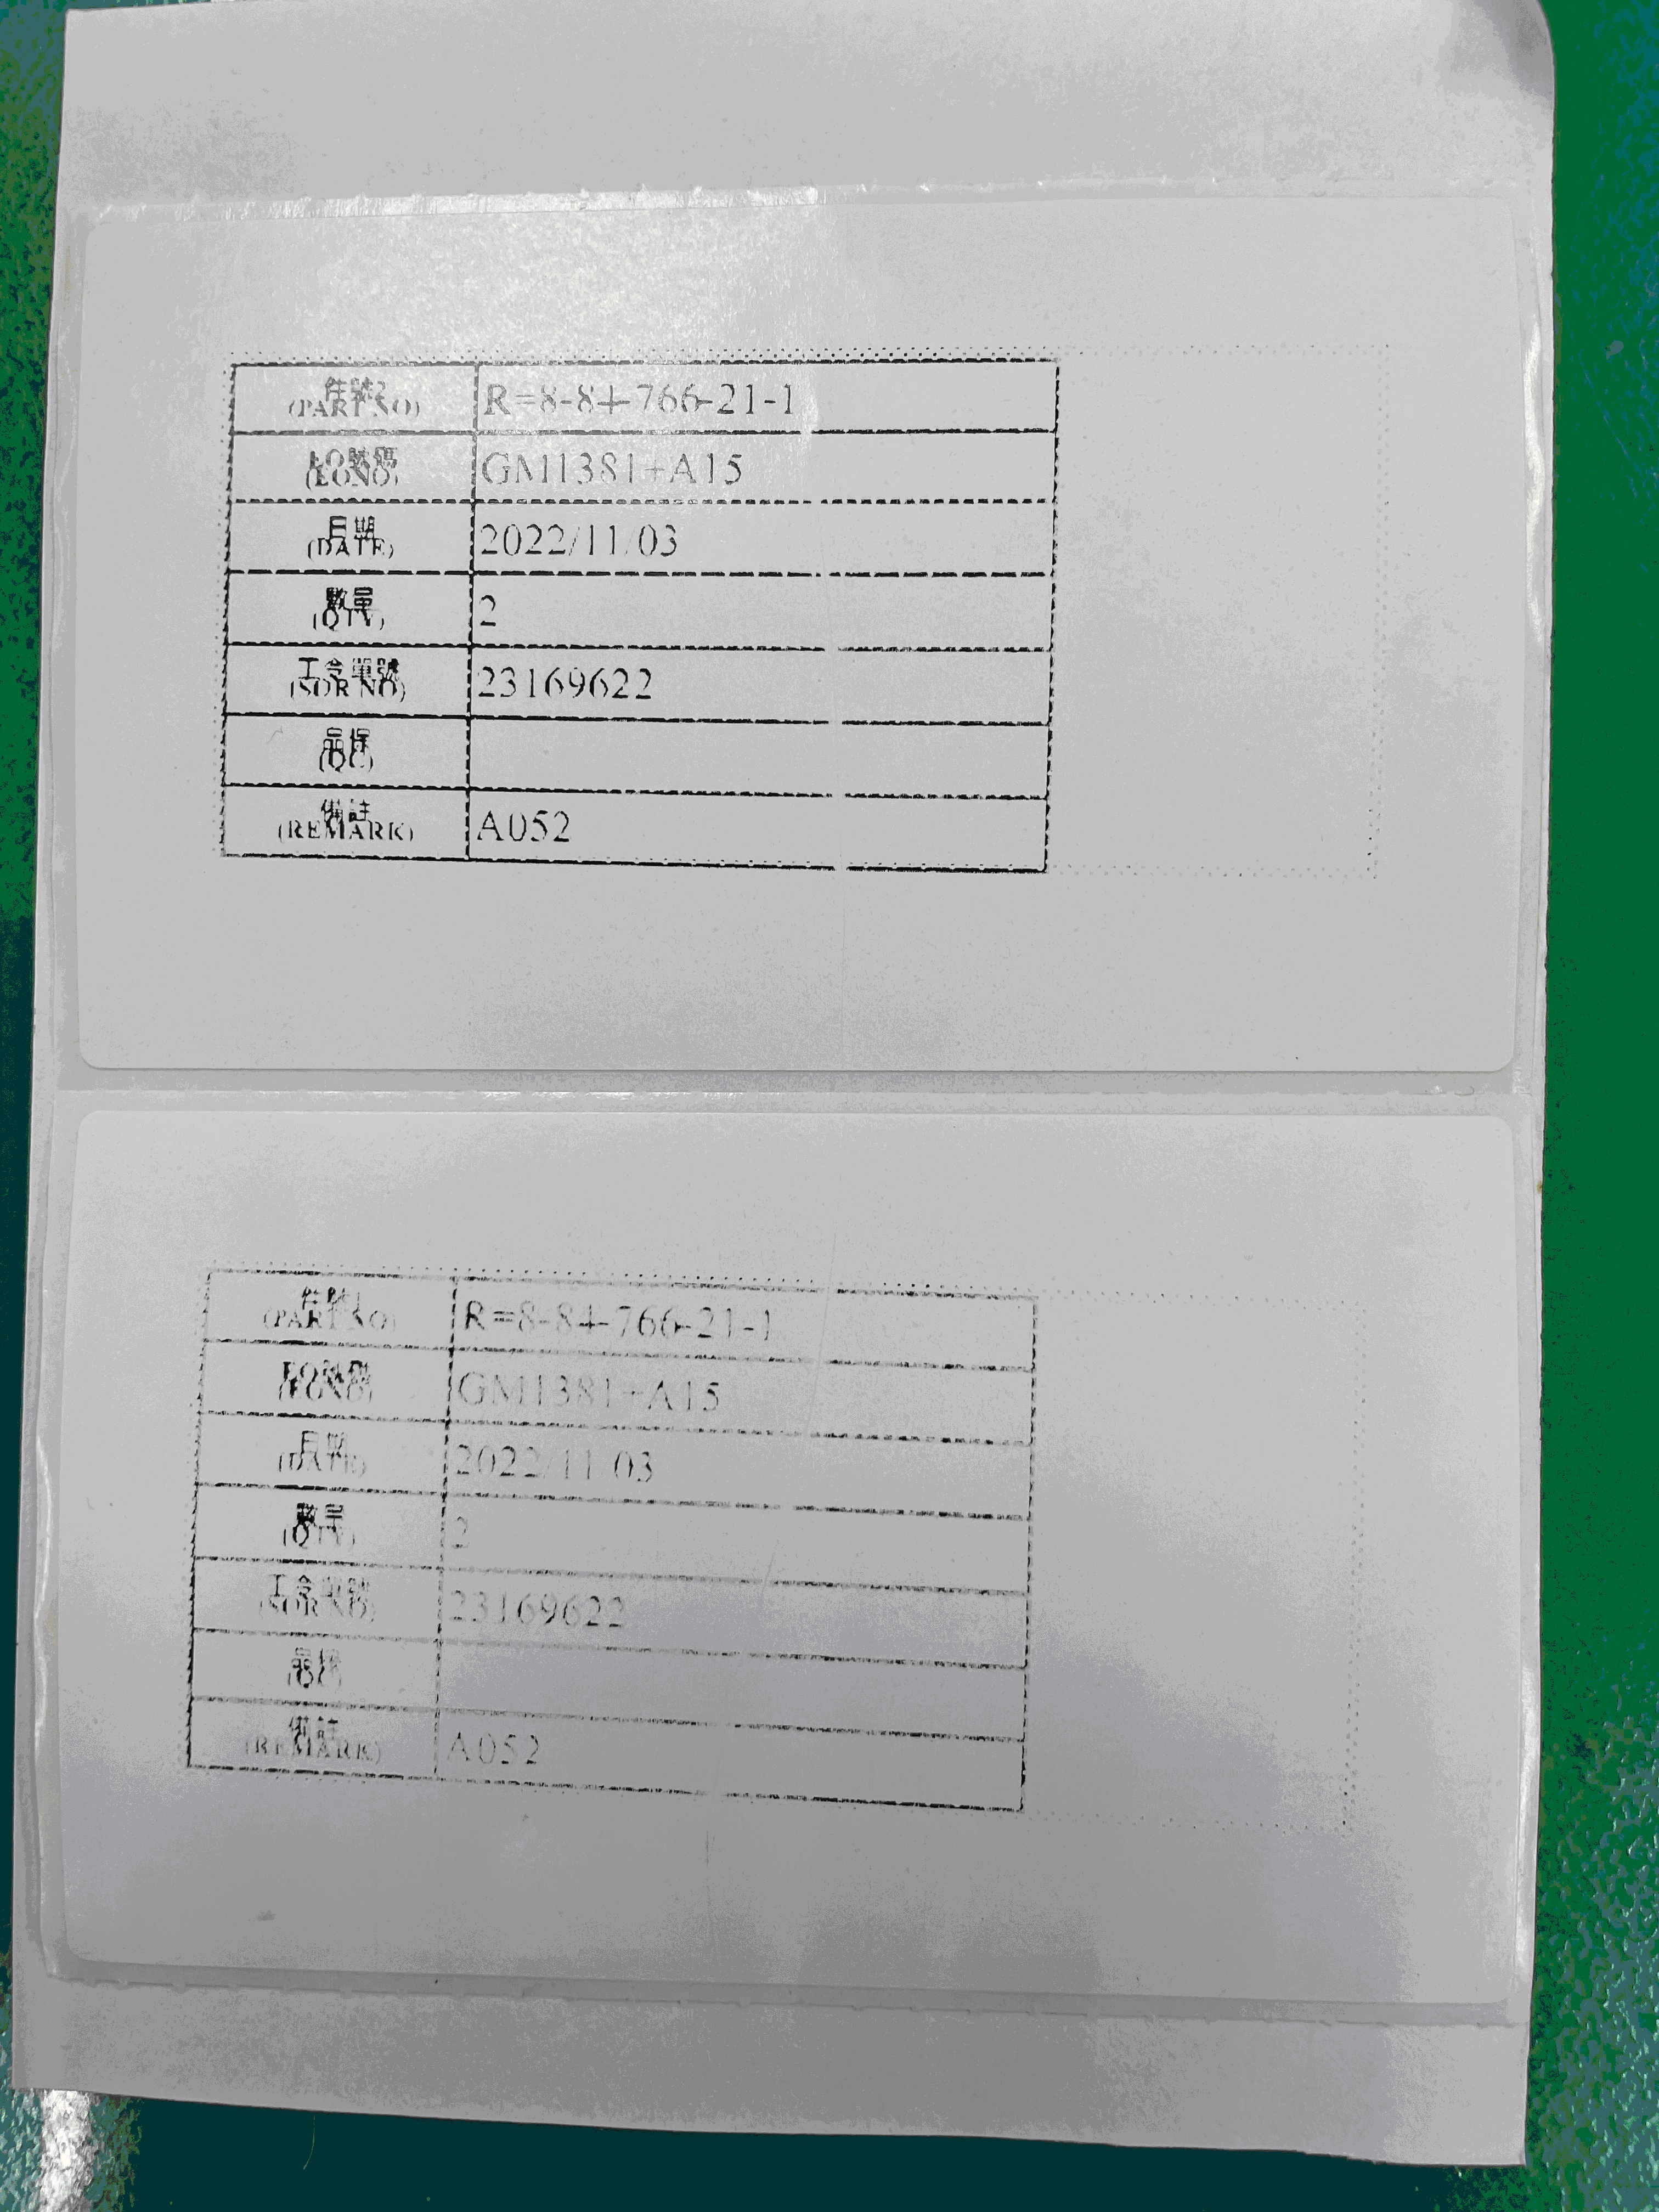 件號
(PART NO)
R=8-84-766-21-1
EO號碼
(EONO)
GM1381+A15
日期
(DATE)
2022/11/03
數量
(QTY)
2
工令單號
(SOR NO)
23169622
品保
(QC)
備註
(REMARK)
A052
件號
(PART NO)
R=8-84-766-21-1
EO號碼
(EONO)
GM1381+A15
日期
(DATE)
2022/11/03
數量
(QTY)
2
工令單號
(SOR NO)
23169622
品保
(QC)
備註
(REMARK)
A052